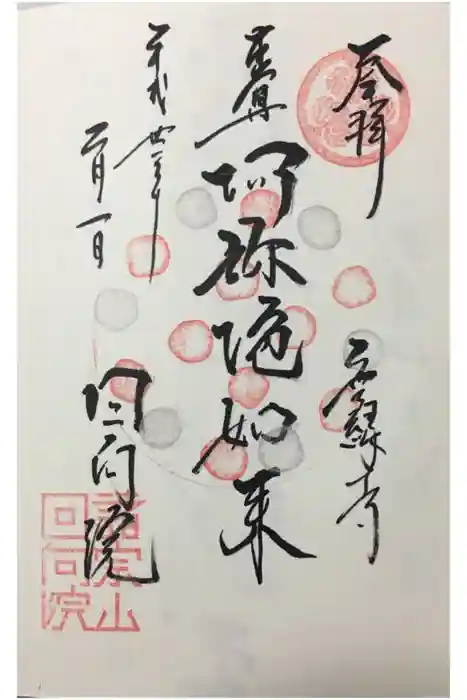 奉拝
無縁寺
本尊
阿弥陀如来
平成
二月一日
回向院
諸宗山
回向院